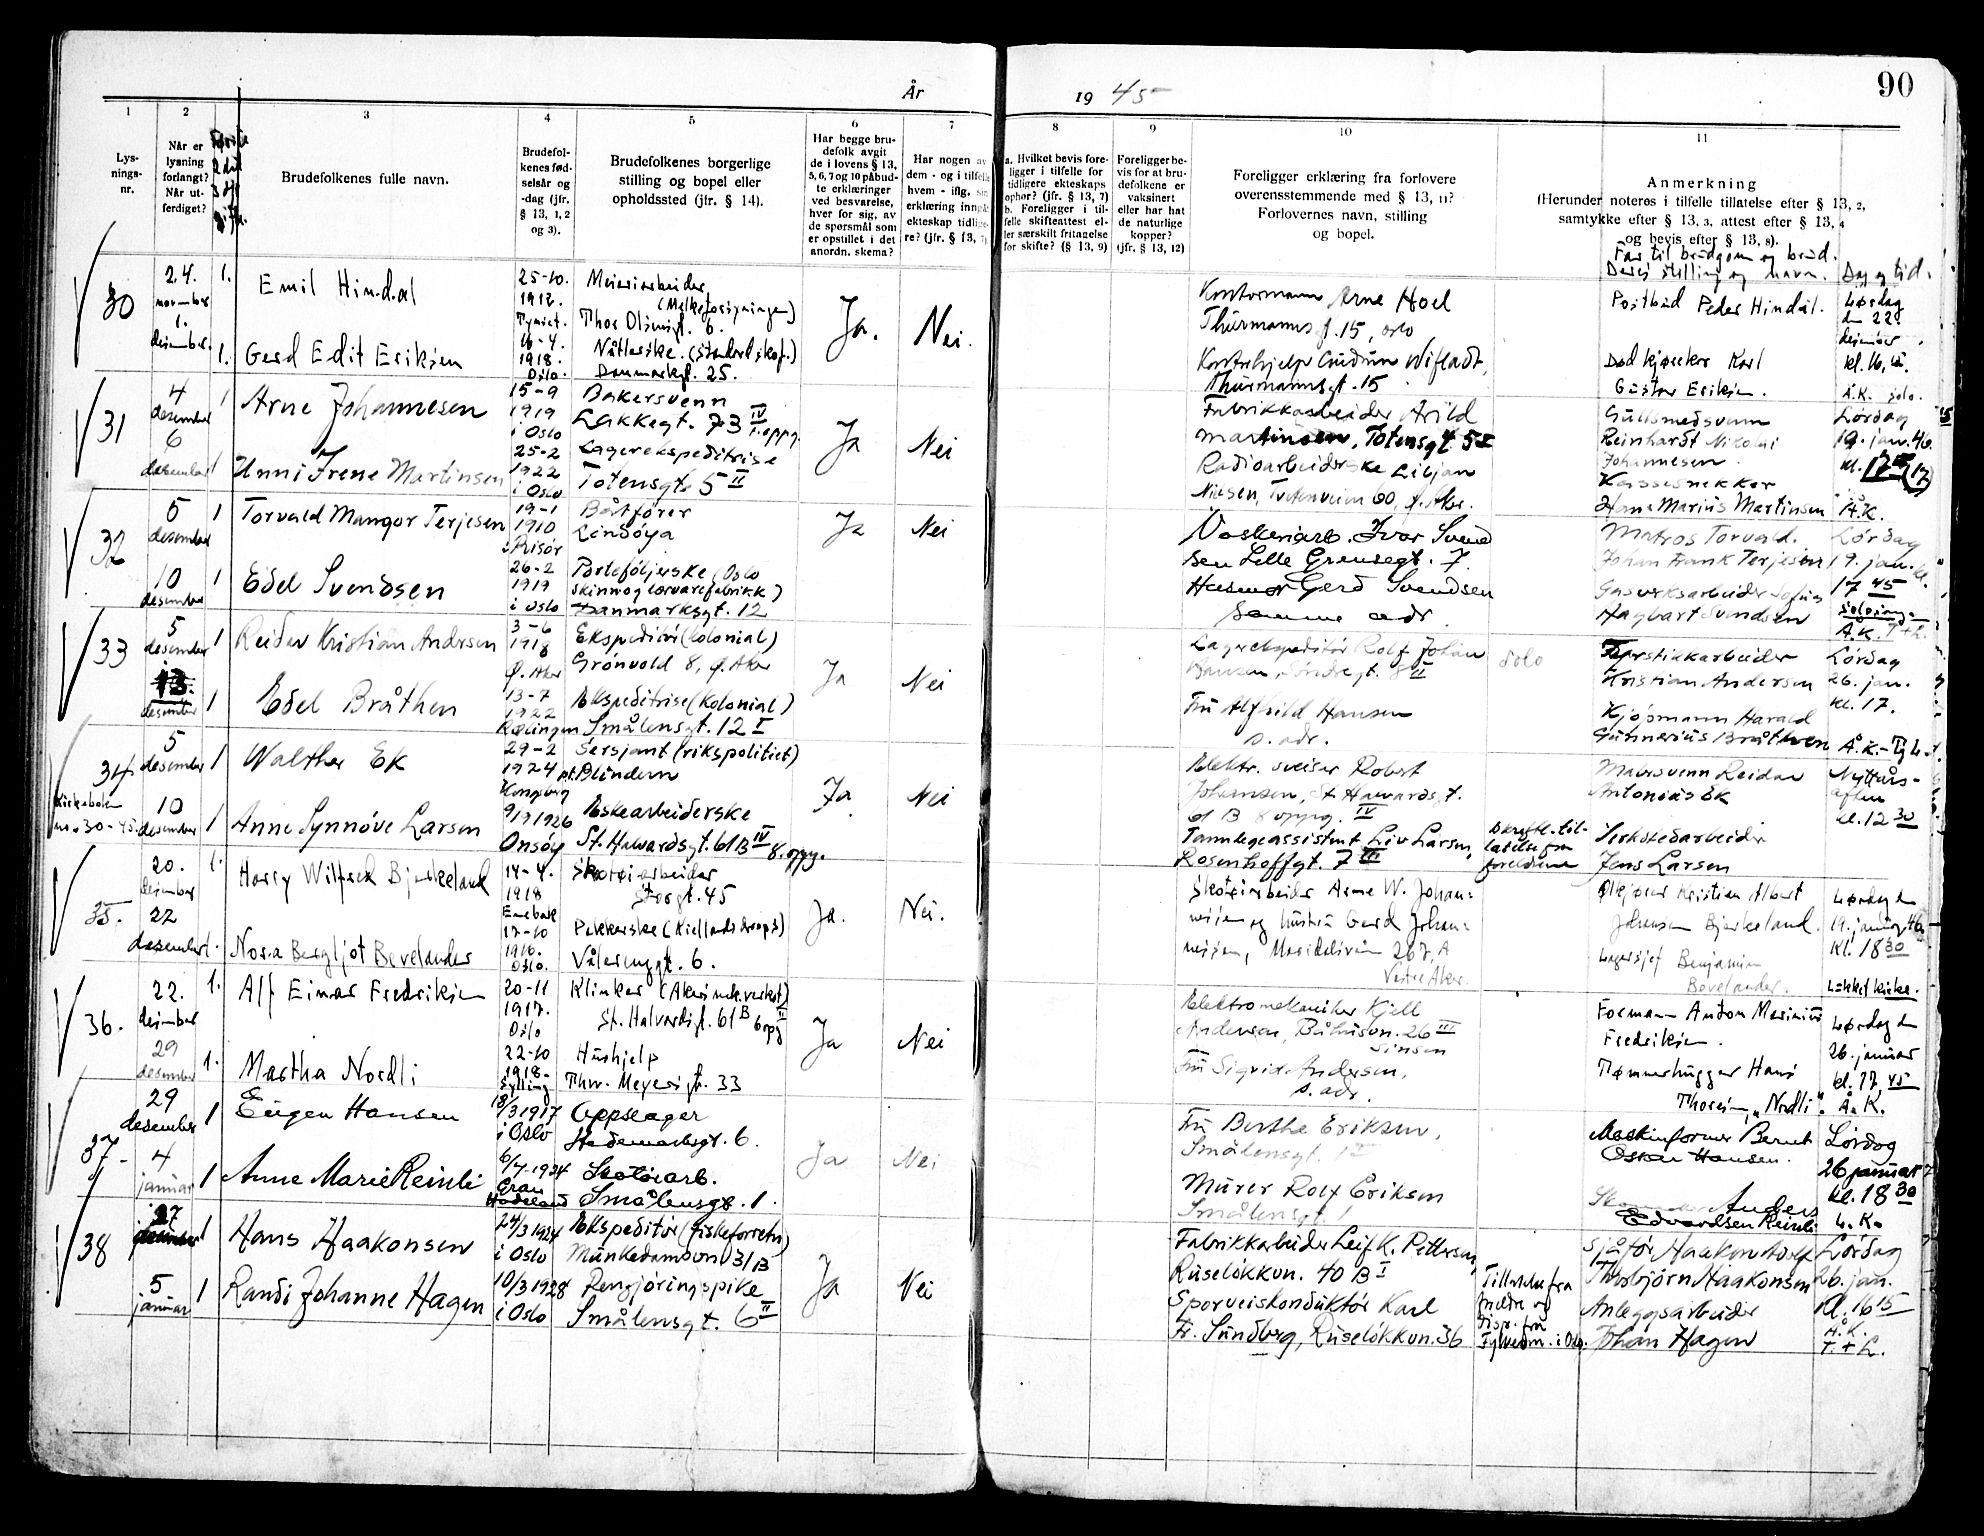 90
År
19 45
1
2
3
4
5
6
7
8
9
10
11
Lys-
nings-
nr.
Når er
lysning
forlangt?
Når ut-
ferdiget?
Brudefolkenes fulle navn.
Brudefol-
kenes fød-
selsår og
-dag (jfr.
§ 13, 1, 2
og 3).
Brudefolkenes borgerlige
stilling og bopel eller
opholdssted (jfr. § 14).
Har begge bru-
defolk avgit
de i lovens § 13,
5, 6, 7 og 10 påbud-
te erklæringer
ved besvarelse,
hver for sig, av
de spørsmål som
er opstillet i det
anordn. skema?
Har nogen av
dem - og i tilfelle
hvem - iflg. sin
erklæring inngått
ekteskap tidlige-
re? (jfr. § 13, 7)
a. Hvilket bevis fore-
ligger i tilfelle for
tidligere ekteskaps
ophør? (jfr. § 13, 7)
b. Foreligger i til-
felle skifteattest el-
ler særskilt fritagelse
for skifte? (§ 13, 9)
Foreligger be-
vis for at bru-
defolkene er
vaksinert
eller har hat
de naturlige
kopper?
(jfr. § 13, 12)
Foreligger erklæring fra forlovere
overensstemmende med § 13, 11?
Forlovernes navn, stilling
og bopel.
Anmerkning
(Herunder noteres i tilfelle tillatelse efter § 13, 2,
samtykke efter § 13, 3, attest efter § 13, 4
og bevis efter § 13, 8).
Far til brudgom og brud.
Deres stilling og navn. Dag og tid.
30
24.
november
1.
desember.
1.
1.
Emil Hindal
Gerd Edit Eriksen
25-10.
1912.
Tynset.
16-4.
1918.
Oslo.
Meieriarbeider
(Melkeforsyningen)
Thor Olsensgt. 6.
Nåtlerske. (Standard skof.)
Danmarksgt. 25.
Ja.
Nei.
Kontormann Arne Hoel
Thurmannsgt. 15, Oslo
Thurmannsgt. 15
Postbud Peder Hindal.
Død kjøreker Karl
Gustav Eriksen.
Lørdag
den 22.
desember.
Å.K. solo.
31
4
desember
6
desember
1
1
Arne Johannesen
Unni Irene Martinsen
15-9
1919
i Oslo
25-2
1922
i Oslo
Bakersvenn
Lakkegt. 73 IV
Lagerekspeditrise
Totensgt. 5 II
Ja
Nei
Fabrikkarbeider Arild
Martinsen, Totensgt. 5 I
Radioarbeiderske Liljan
Nielsen, Tvetenveien 60, Ø. Aker.
Gullsmedsvenn
Reinhardt Nikolai
Johannesen.
Kassesnekker
Hans Marius Martinsen
Lørdag
19. jan. 46
kl. 17
(17)
Å.K.
32
5
desember
10
desember
1
1
Torvald Mangor Terjesen
Edel Svendsen
19-1
1910
i Risør
26-2
1919
i Oslo
Båtfører
Lindøya
Porteføljerske (Oslo
skinn og lærvarefabrikk)
Danmarksgt. 12
Ja
Nei
Vaskeriarb. Ivar Svend
sen Lille Grensegt. 7.
Husmor Gerd Svendsen
Samme adr.
Matros Torvald
Johan Frank Terjesen
Gasverksarbeider Sofus
Hagbart Svendsen
Lørdag
19. jan. kl.
17 45
Å.K.
33
5
desember
13.
desember
1
1
Reidar Kristian Andersen
Edel Bråthen
3-6
1918
Ø. Aker
13-7
1922
Rælingen
Ekspeditør (kolonial)
Grønvold 8, Ø. Aker
Ekspeditrise (kolonial)
Smålensgt. 12 I
Ja
Nei
Lagerekspeditør Rolf Johan
Hansen, Søndregt. 8 II
Fru Alfhild Hansen
s. adr.
solo
Fyrstikkarbeider
Kristian Andersen
Kjøpmann Harald
Gunnerius Bråthen
Lørdag
26. jan.
kl. 17.
34
Kirkeboken
no. 30-45.
5
desember
10
desember
1
1
Walther Ek
Anne Synnøve Larsen
29-2
1924
Kongsberg
9/9 1926
Onsøy
Sersjant (rikspolitiet)
pt. Blindern
Eskearbeiderske
St. Halvardsgt. 61 B IV
8. oppg.
Ja
Nei
Elektr. sveiser Robert
Johansen, St. Halvardsgt.
61 B 8 oppg. IV
Tannlegeassistent Liv Larsen,
Rosenhoffgt. 7 III
Skriftl. til-
latelse fra
foreldrene
Malersvenn Reidar
Antonius Ek
Verkstedarbeider
Jens Larsen
Nyttårs-
aften
kl. 12 30
35.
20.
desember
22
desember
1.
1.
Harry Wilfred Bjerkeland
Nora Bergljot Bevelander
14-4.
1918
Enebakk
17-10
1916.
Oslo.
Skotøiarbeider
Storgt. 45
Pakkerske (Kiellands drops)
Vålerenggt. 6.
Ja.
Nei.
Skotøiarbeider Arne W. Johan-
nesen og hustru Gerd Johan-
nesen, Maridalsveien 267, A
Vestre Aker.
Ølkjører Kristian Albert
Johansen Bjerkeland.
Lagersjef Benjamin
Bevelander.
Lørdag den
19. januar 46
Kl. 18 30
36.
22.
desember
29
desember
1.
1.
Alf Einar Fredriksen
Martha Nordli
20-11
1917.
Oslo
22-10
1918-
Sylling
Klinker (Akers mek. verkst.)
St. Halvardsgt. 61 B
Hushjelp
Thv. Meyersgt. 33
Ja
Nei
Elektromekaniker Kjell
Andersen, Båhusvn. 26 III
Sinsen
Fru Sigrid Andersen,
s. adr.
Formann Anton Marinius
Fredriksen.
Tømmerhugger Hans
Thoresen "Nordli".
Lørdag den
26. januar
kl. 17, 45
Å.K.
37-
29
desember
4
januar
1
1
Eugen Hansen
Anne Marie Reinli
18/3 1917
i Oslo
6/7-1924
Gran
Hadeland
Oppseager
Hedemarksgt. 6.
Skotøiarb.
Smålensgt. 1.
Ja
Nei
Fru Berthe Eriksen,
Smålensgt. 1
Murer Rolf Eriksen
Smålensgt. 1
Maskinformer Bernt
Oskar Hansen.
Anders
Edvardsen Reinli
Lørdag
26 januar
kl. 18 30
38
27
5
januar
1
1
Hans Haakonsen
Randi Johanne Hagen
24/3 1924
i Oslo
10/3 1928
i Oslo
Ekspeditør (fiskeforretn)
Munkedamsvn 31 B
Rengjøringspike
Smålensgt. 6 II
Ja
Nei
Fabrikkarbeider Leif K. Pettersen,
Ruseløkkvn. 40 B I
Sporveiskonduktør Karl
Fr. Sundberg, Ruseløkkvn. 36
Tillatelse fra
foreldre og
disp. fra
Fylkesm. i Oslo.
Sjåfør Haakon Adolf
Thorbjørn Haakonsen
Anleggsarbeider
Johan Hagen
Lørdag
26. jan.
kl. 16 15
Å.K.
T. + L.